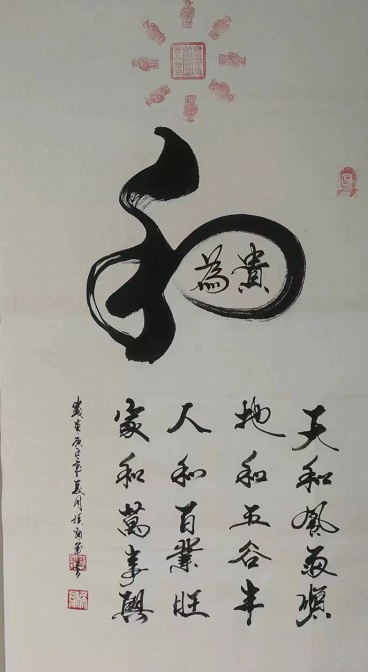 和
為貴
天和風雨順
地和五谷丰
人和百業旺
家和萬事興
歲在庚子年夏月